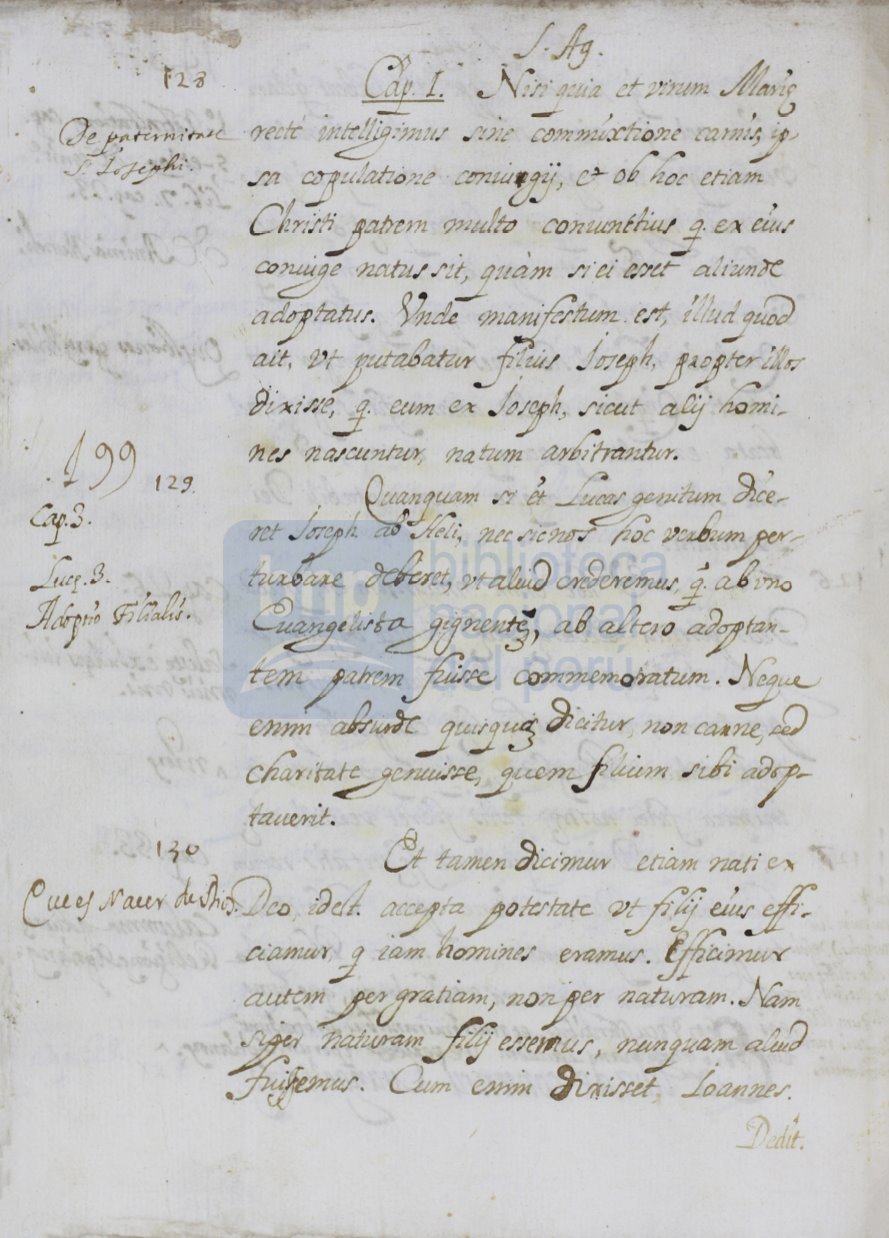 S. Ag.
128
Cap. I. Nisi quia et virum Marię
De paternitate
S. Iosephi.
recté intelligimus sine commixtione carnis, ip-
sa copulatione coniugij, et ob hoc etiam
Christi patrem multo coniunctius q. ex eius
coniuge natus sit, quàm si ei esset aliunde
adoptatus. Vnde manifestum est, illud quod
ait, vt putabatur filius Ioseph, propter illos
dixisse, q. eum ex Ioseph, sicut alij homi-
nes nascuntur, natum arbitrantur.
199
129.
Cap. 3.
Lucę. 3.
Adoptio Filialis.
Quanquam si et Lucas genitum dice-
ret Ioseph ab Heli, nec sic nos hoc verbum per-
turbare deberet, vt aliud crederemus, q. ab uno
Euangelista gignentẽ, ab altero adoptan-
tem patrem fuisse commemoratum. Neque
enim absurde quisquã dicitur, non carne, sed
charitate genuisse, quem filium sibi adop-
tauerit.
130
Que es Nacer de Dios.
Et tamen dicimur etiam nati ex
Deo, idest. accepta potestate vt filij eius effi-
ciamur, q iam homines eramus. Efficimur
autem per gratiam, non per naturam. Nam
si per naturam filij essemus, nunquam aliud
fuissemus. Cum enim dixisset Ioannes.
Dedit.
biblioteca
nacional
del perú
bnp